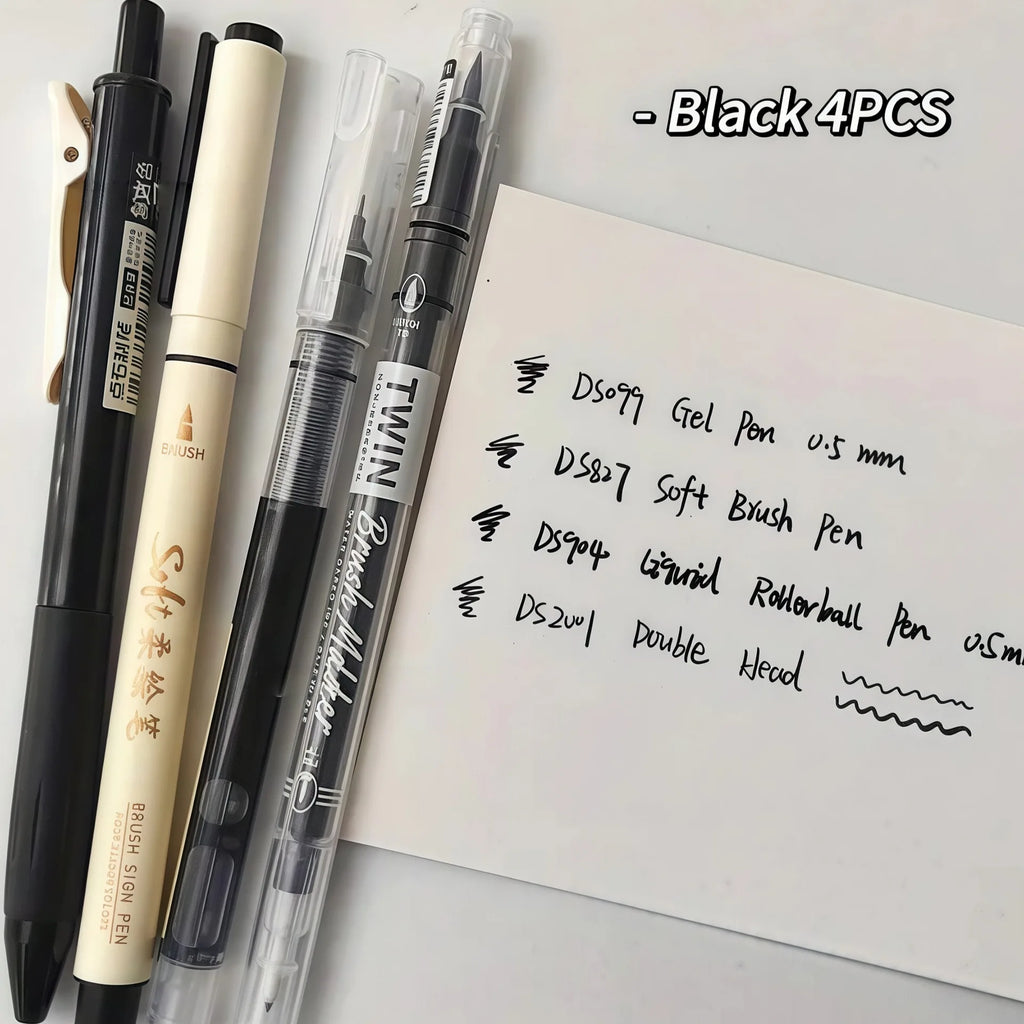 - Black 4PCS
DS099 Gel Pen 0.5 mm
DS827 Soft Brush Pen
DS904 Liquid Rollerball Pen 0.5mm
DS2001 Double Head
BRUSH
Soft柔绘笔
BRUSH SIGN PEN
TWIN
Brush Marker